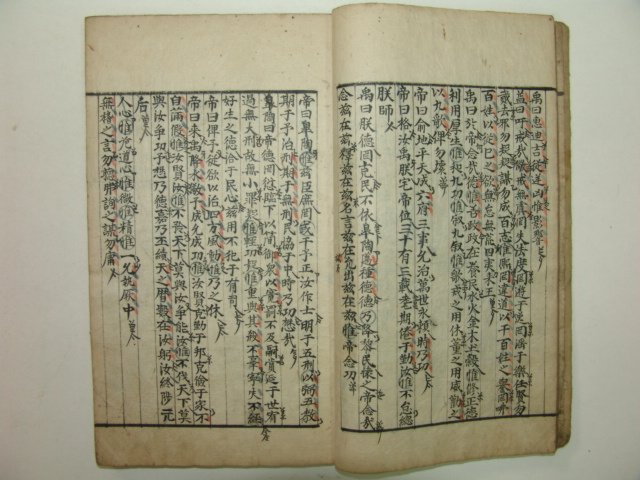 禹曰惠迪吉從逆凶惟影響
益曰吁戒哉儆戒無虞罔失法度罔遊于逸罔淫于樂任賢勿
貳去邪勿疑疑謀勿成百志惟熙罔違道以干百姓之譽罔咈
百姓以從己之欲無怠無荒四夷來王
禹曰於帝念哉德惟善政政在養民水火金木土穀惟修正德
利用厚生惟和九功惟叙九叙惟歌戒之用休董之用威勸之
以九歌俾勿壞
帝曰俞地平天成六府三事允治萬世永賴時乃功
帝曰格汝禹朕宅帝位三十有三載耄期倦于勤汝惟不怠總
朕師
禹曰朕德罔克民不依皐陶邁種德德乃降黎民懷之帝念哉
念玆在玆釋玆在玆名言玆在玆允出玆在玆惟帝念功
帝曰皐陶惟玆臣庶罔或干予正汝作士明于五刑以弼五敎
期于予治刑期于無刑民協于中時乃功懋哉
皐陶曰帝德罔愆臨下以簡御衆以寬罰不及嗣賞延于世宥
過無大刑故無小罪疑惟輕功疑惟重與其殺不辜寧失不經
好生之德洽于民心玆用不犯于有司
帝曰俾予從欲以治四方風動惟乃之休
帝曰來禹降水儆予成允成功惟汝賢克勤于邦克儉于家不
自滿假惟汝賢汝惟不矜天下莫與汝爭能汝惟不伐天下莫
與汝爭功予懋乃德嘉乃丕績天之曆數在汝躬汝終陟元
后
人心惟危道心惟微惟精惟一允執厥中
無稽之言勿聽弗詢之謀勿庸